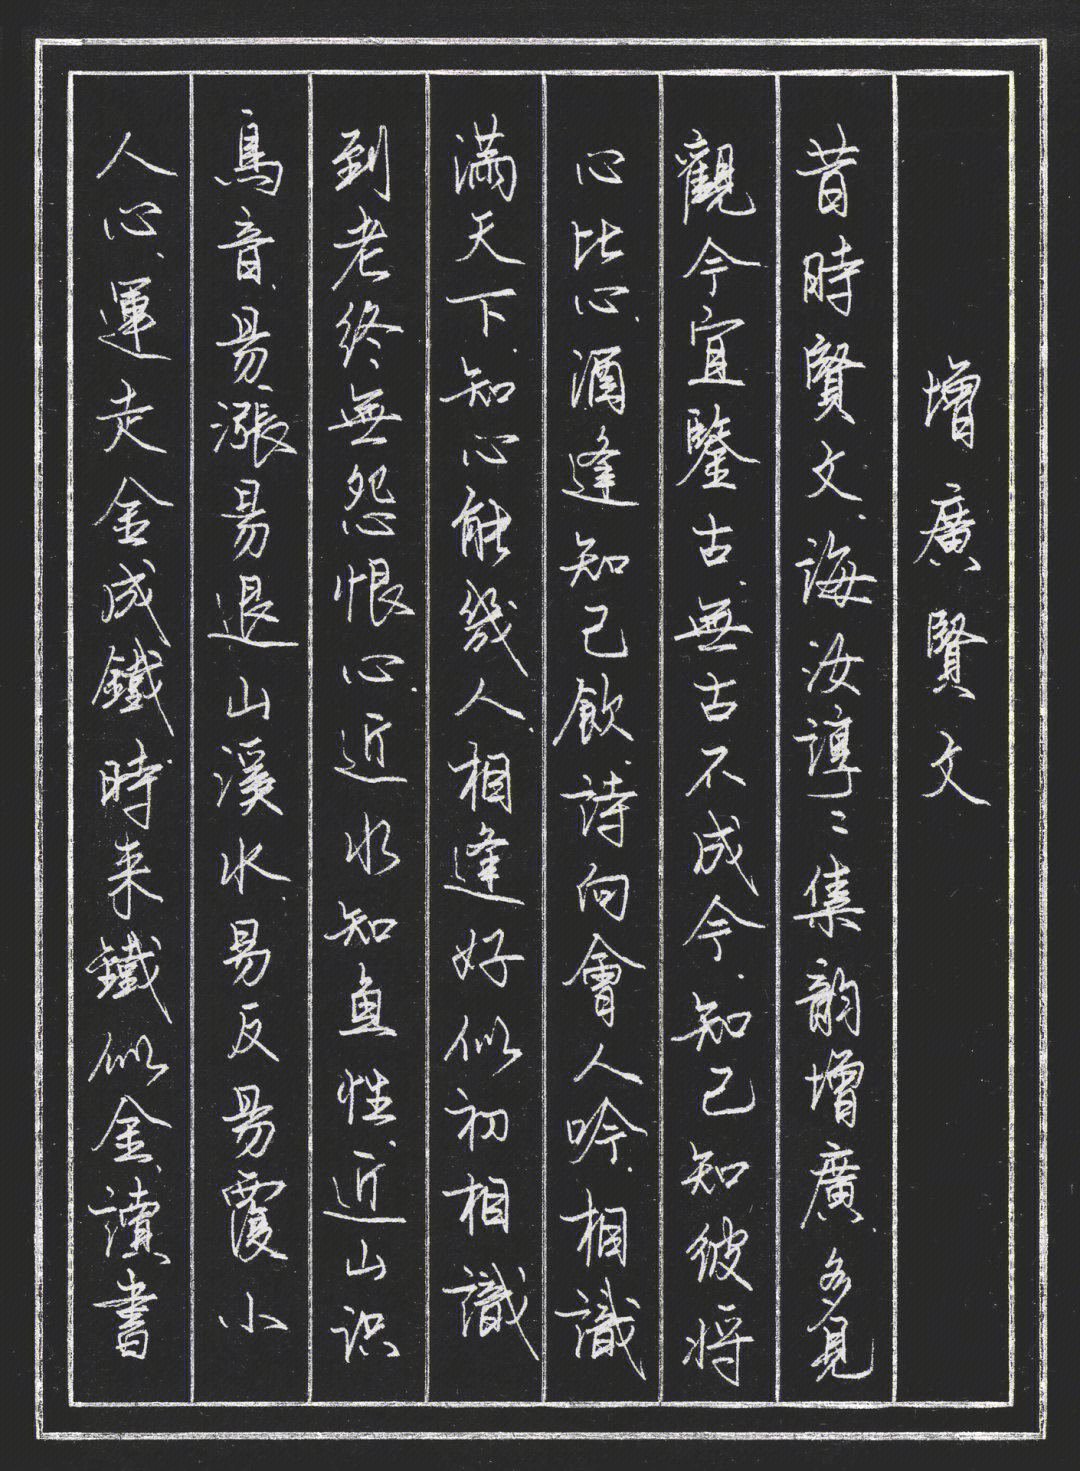 增廣賢文
昔時賢文、誨汝諄〻集韵增廣、多見
觀今宜鑒古、無古不成今、知己知彼将
心比心、酒逢知己飲、詩向會人吟、相識
滿天下、知心能幾人、相逢好似初相識
到老終無怨恨心、近水知鱼性、近山识
鳥音、易漲易退山溪水、易反易覆小
人心、運走金成鐵時来鐵似金、讀書